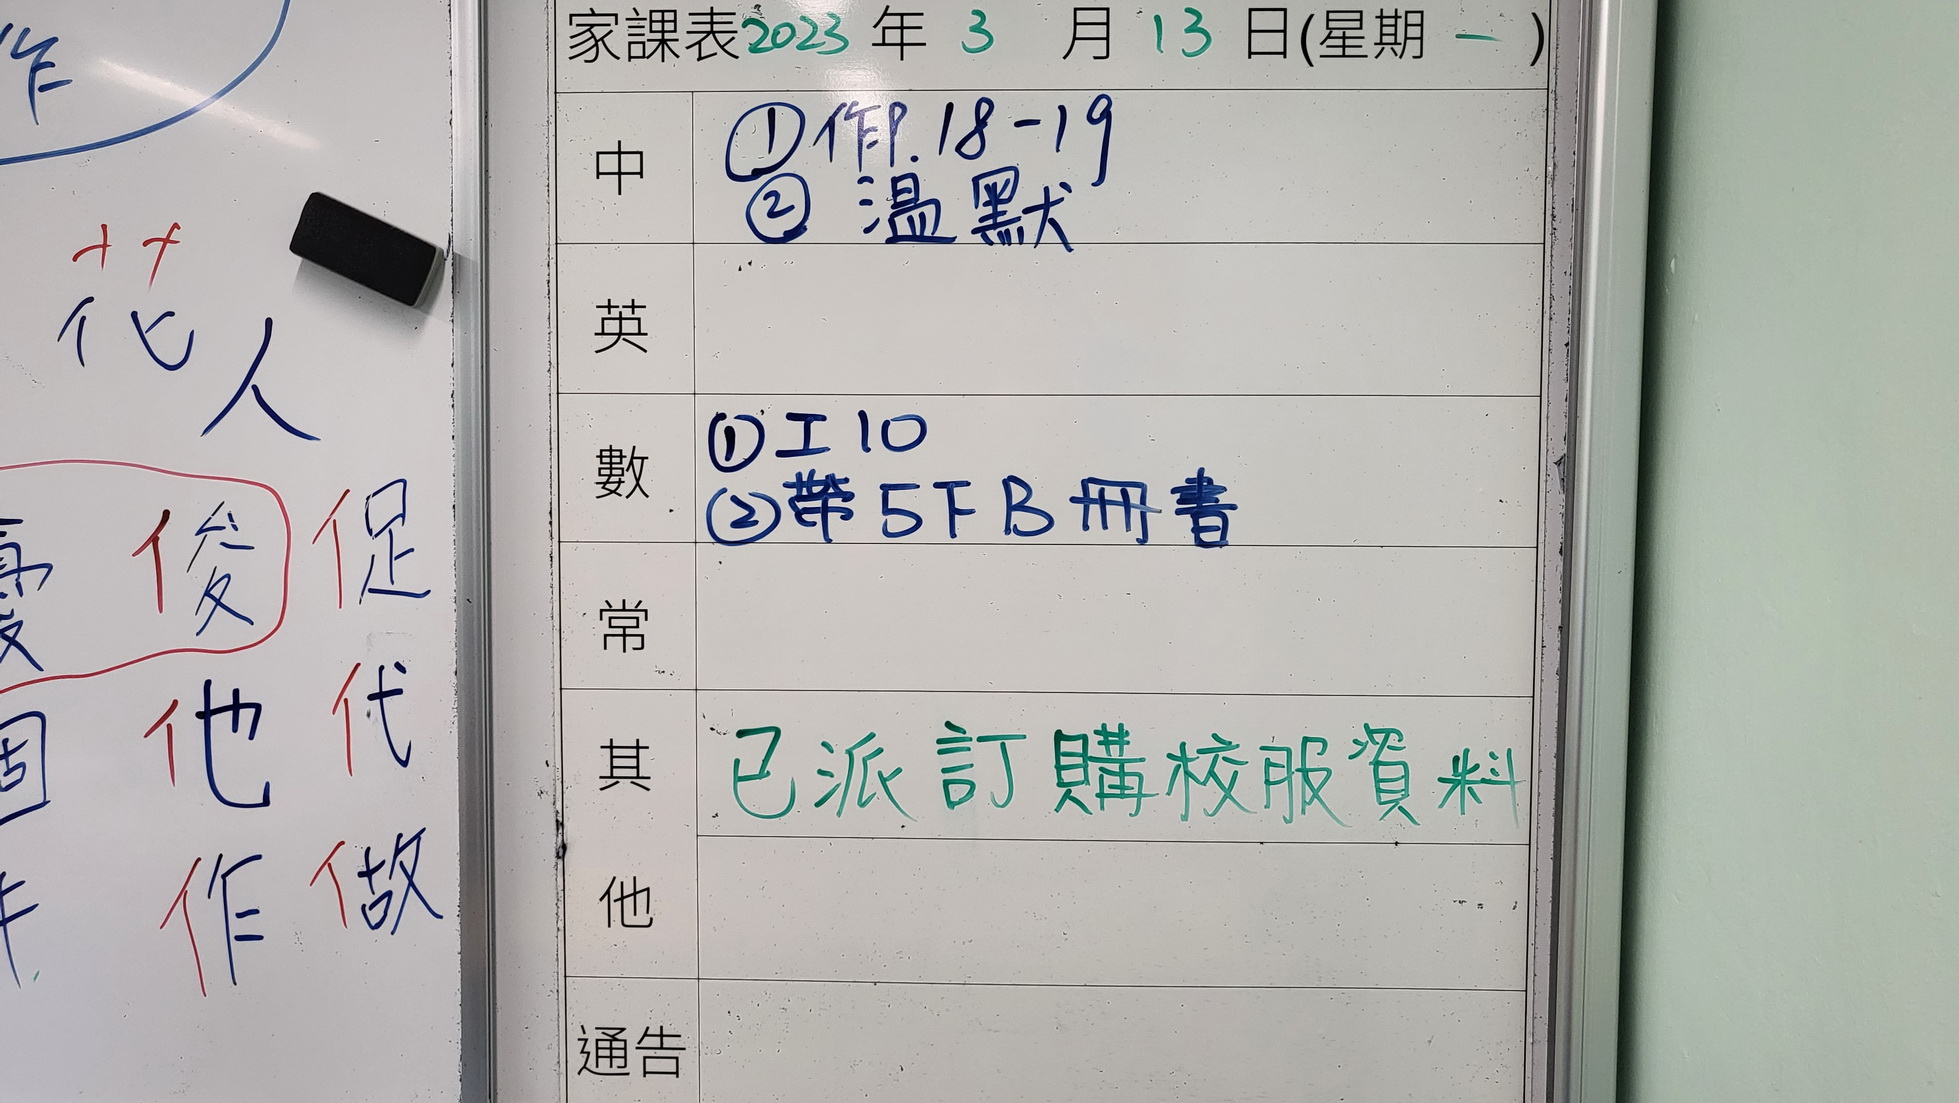 作
艹
花
人
俊 促
個 他 代
作 做
家課表2023年3月13日(星期一)
中
①作P.18-19
②溫默
英
數
①工10
②帶5下B冊書
常
其他
已派訂購校服資料
通告